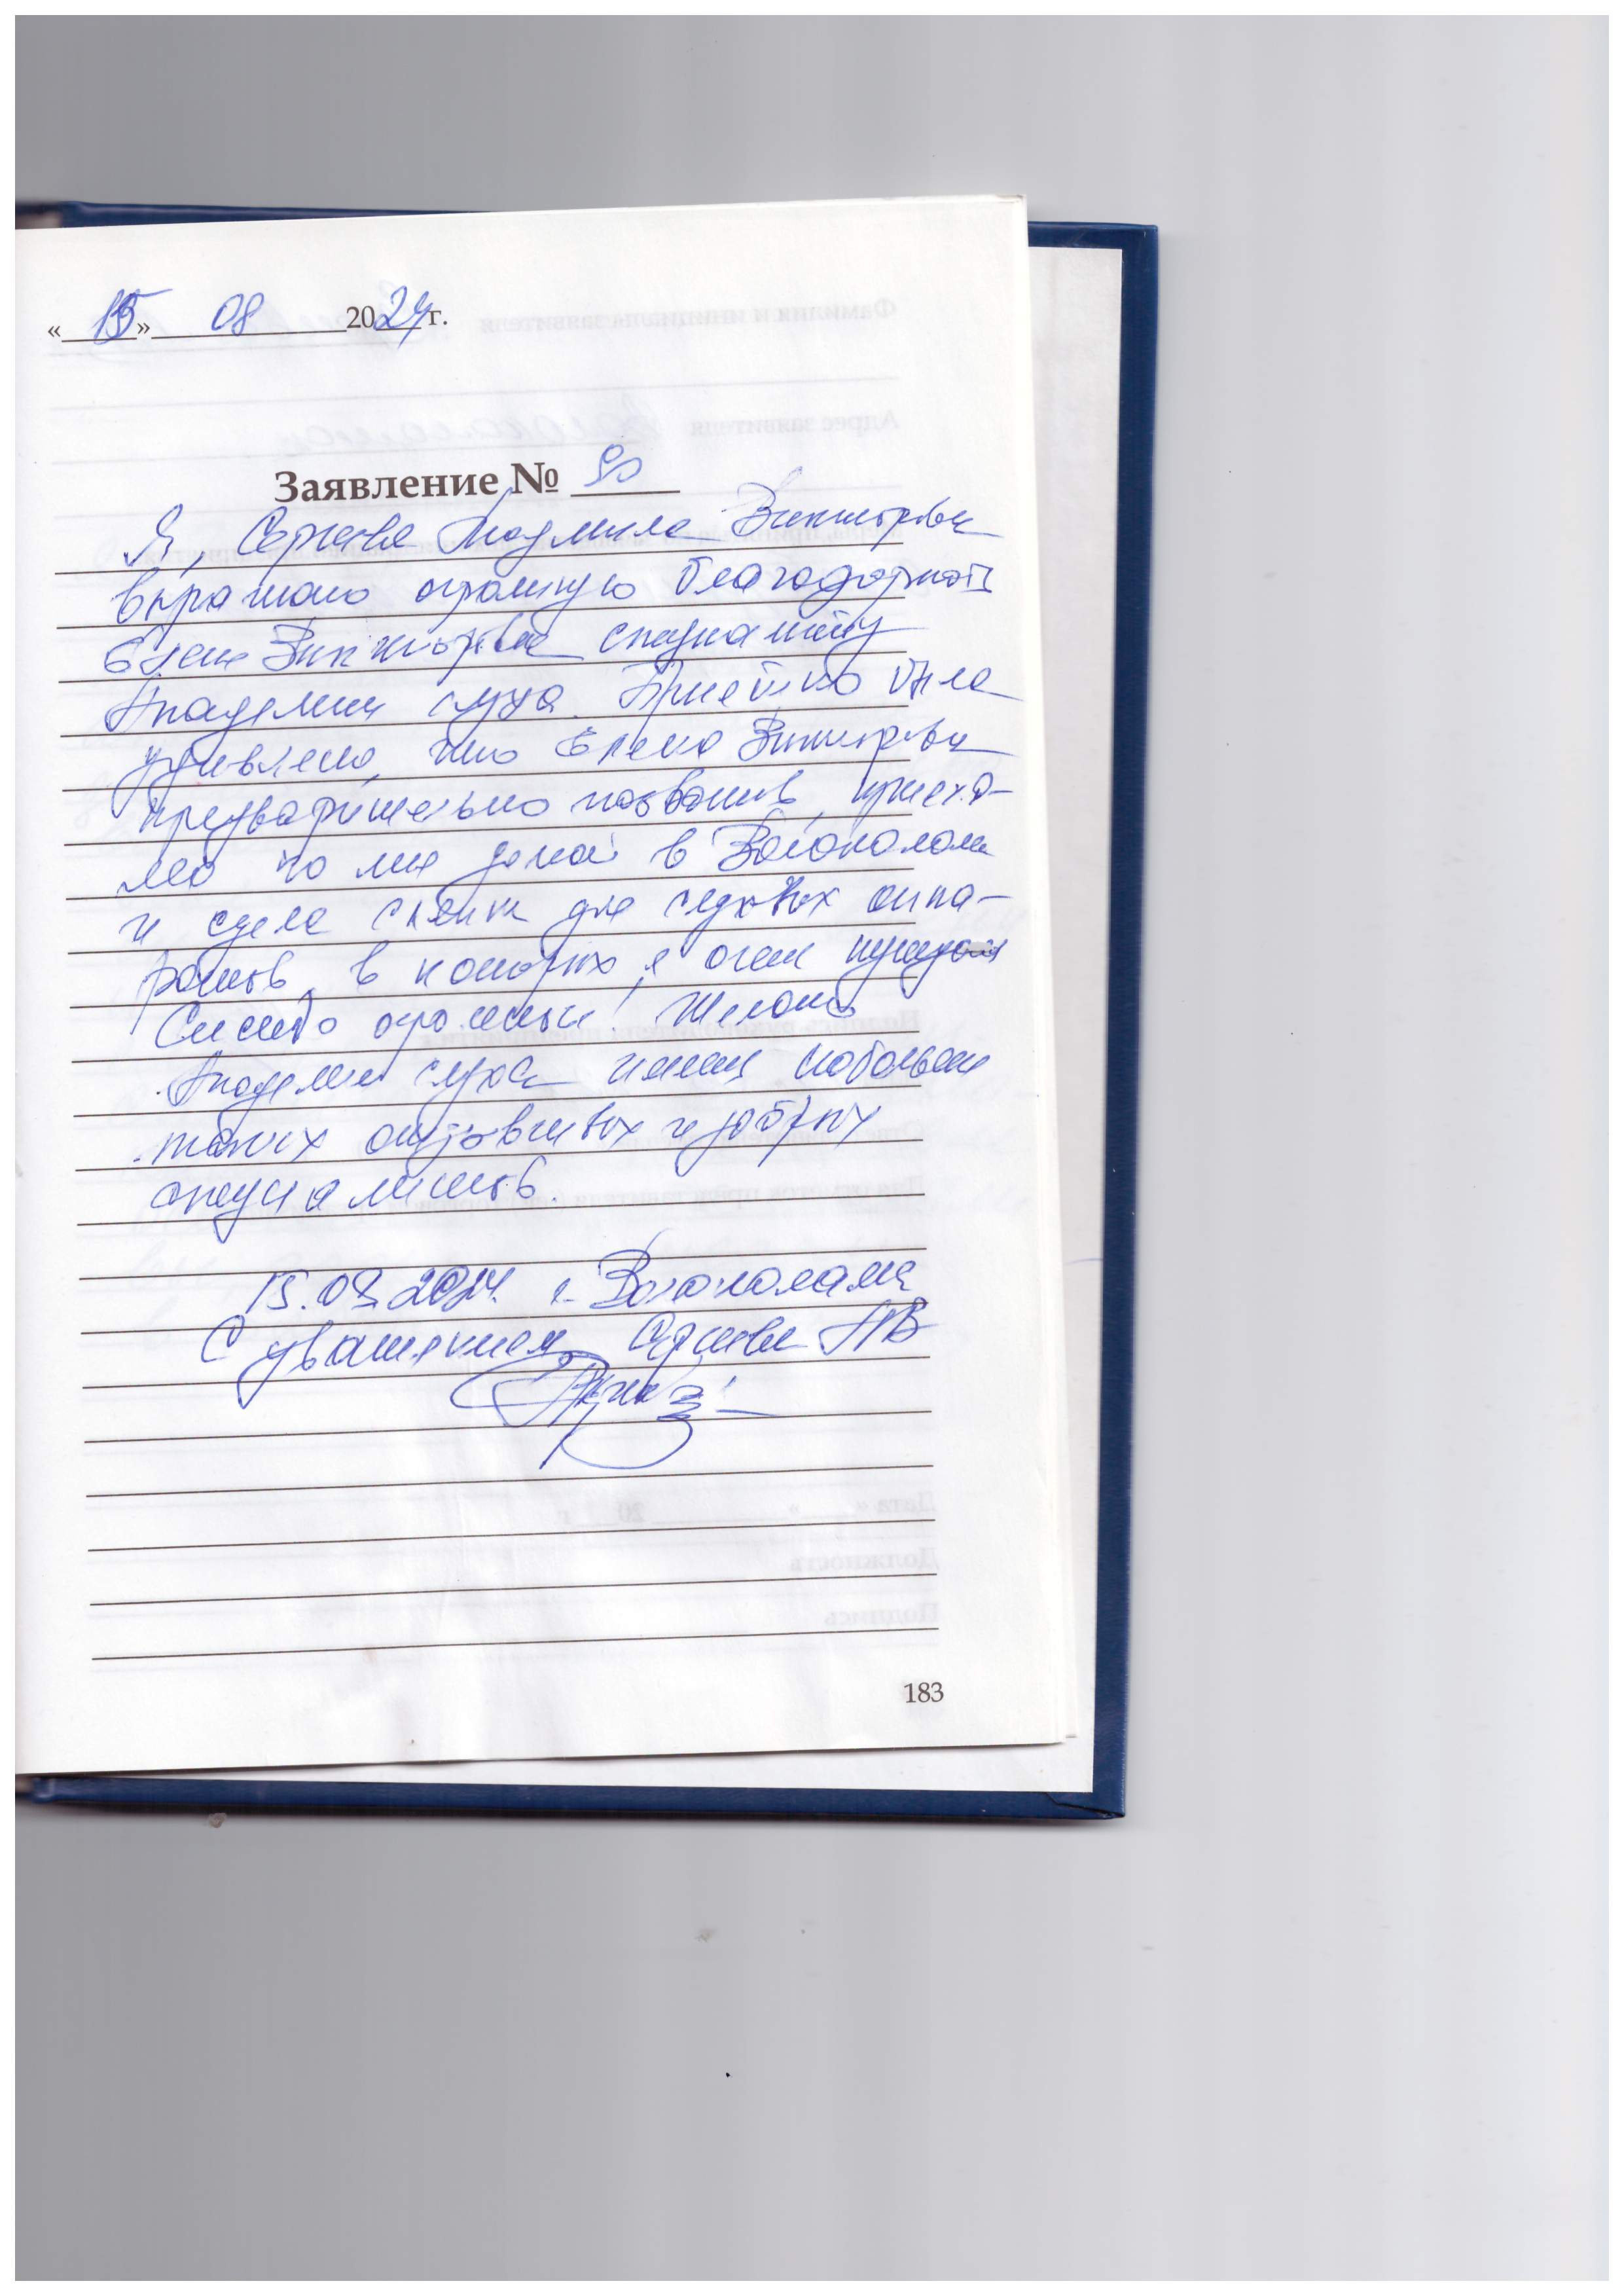 «15» 08 2024 г.
Заявление № 90
Я, Людмила Викторовна
выражаю огромную благодарность
Елене Викторовне специалисту
Академии слуха. Приятно была
удивлена, что Елена Викторовна
предварительно позвонив, приеха-
ла ко мне домой в Волоколамск
и сдела слепки для слуховых аппа-
ратов, в которых я очень нуждаюсь
Спасибо огромное! Желаю
Академии слуха иметь побольше
таких отзывчивых и добрых
специалистов.
15.08.2024. г. Волоколамск
С уважением ЛВ
183